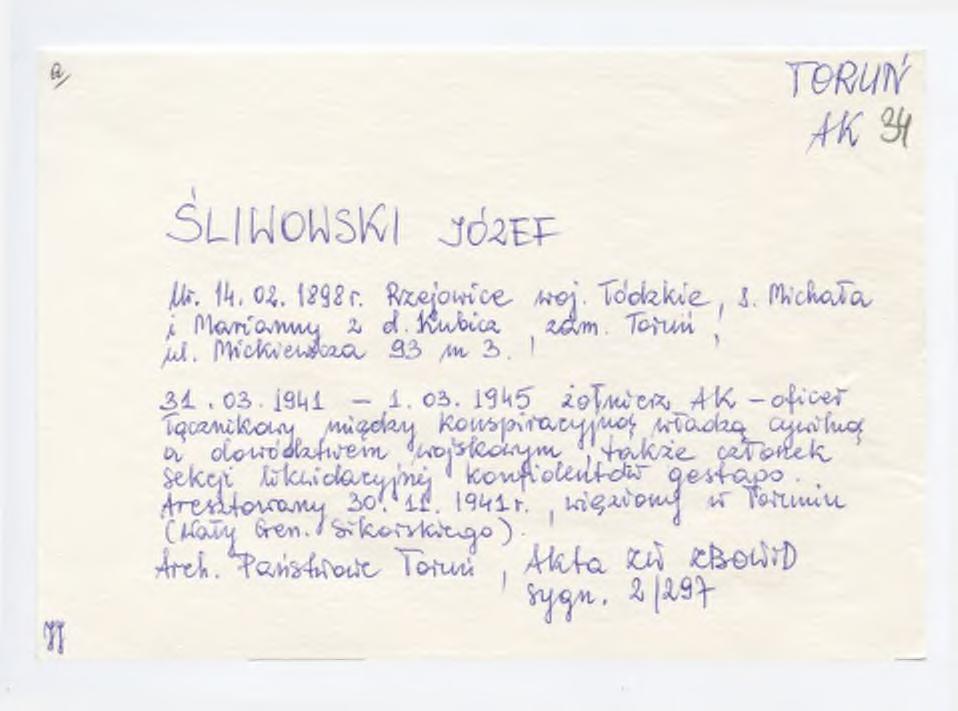 a/
TORUŃ
AK 34
ŚLIWOWSKI JÓZEF
Ur. 14.02.1898 r. Rzejowice woj. Łódzkie, s. Michała
i Marianny z d. Kubica, zam. Toruń,
ul. Mickiewicza 93 m 3.
31.03.1941 – 1.03.1945 żołnierz AK – oficer
łącznikowy między konspiracyjną władzą cywilną
a dowództwem wojskowym, także członek
sekcji likwidacyjnej konfidentów gestapo.
Aresztowany 30.11.1941 r., więziony w Toruniu
(Wały Gen. Sikorskiego).
Arch. Państwowe Toruń, Akta ZW ZBOWiD
sygn. 2/297